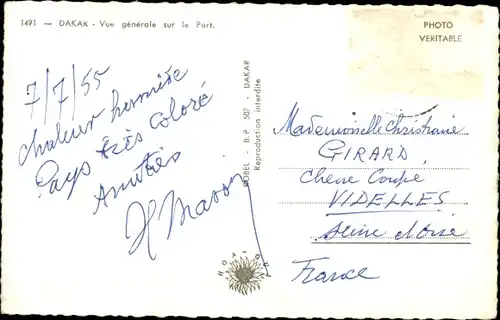 1491 — DAKAR - Vue générale sur le Port.
PHOTO
VERITABLE
7/7/55
Chaleur humide
Pays très coloré
Amitiés
H Masson
HOBEL - B.P. 507 - DAKAR
Reproduction interdite
HOA-QUI
Mademoiselle Christiane
GIRARD
Chene Coupé
VIDELLES
Seine et Oise
France